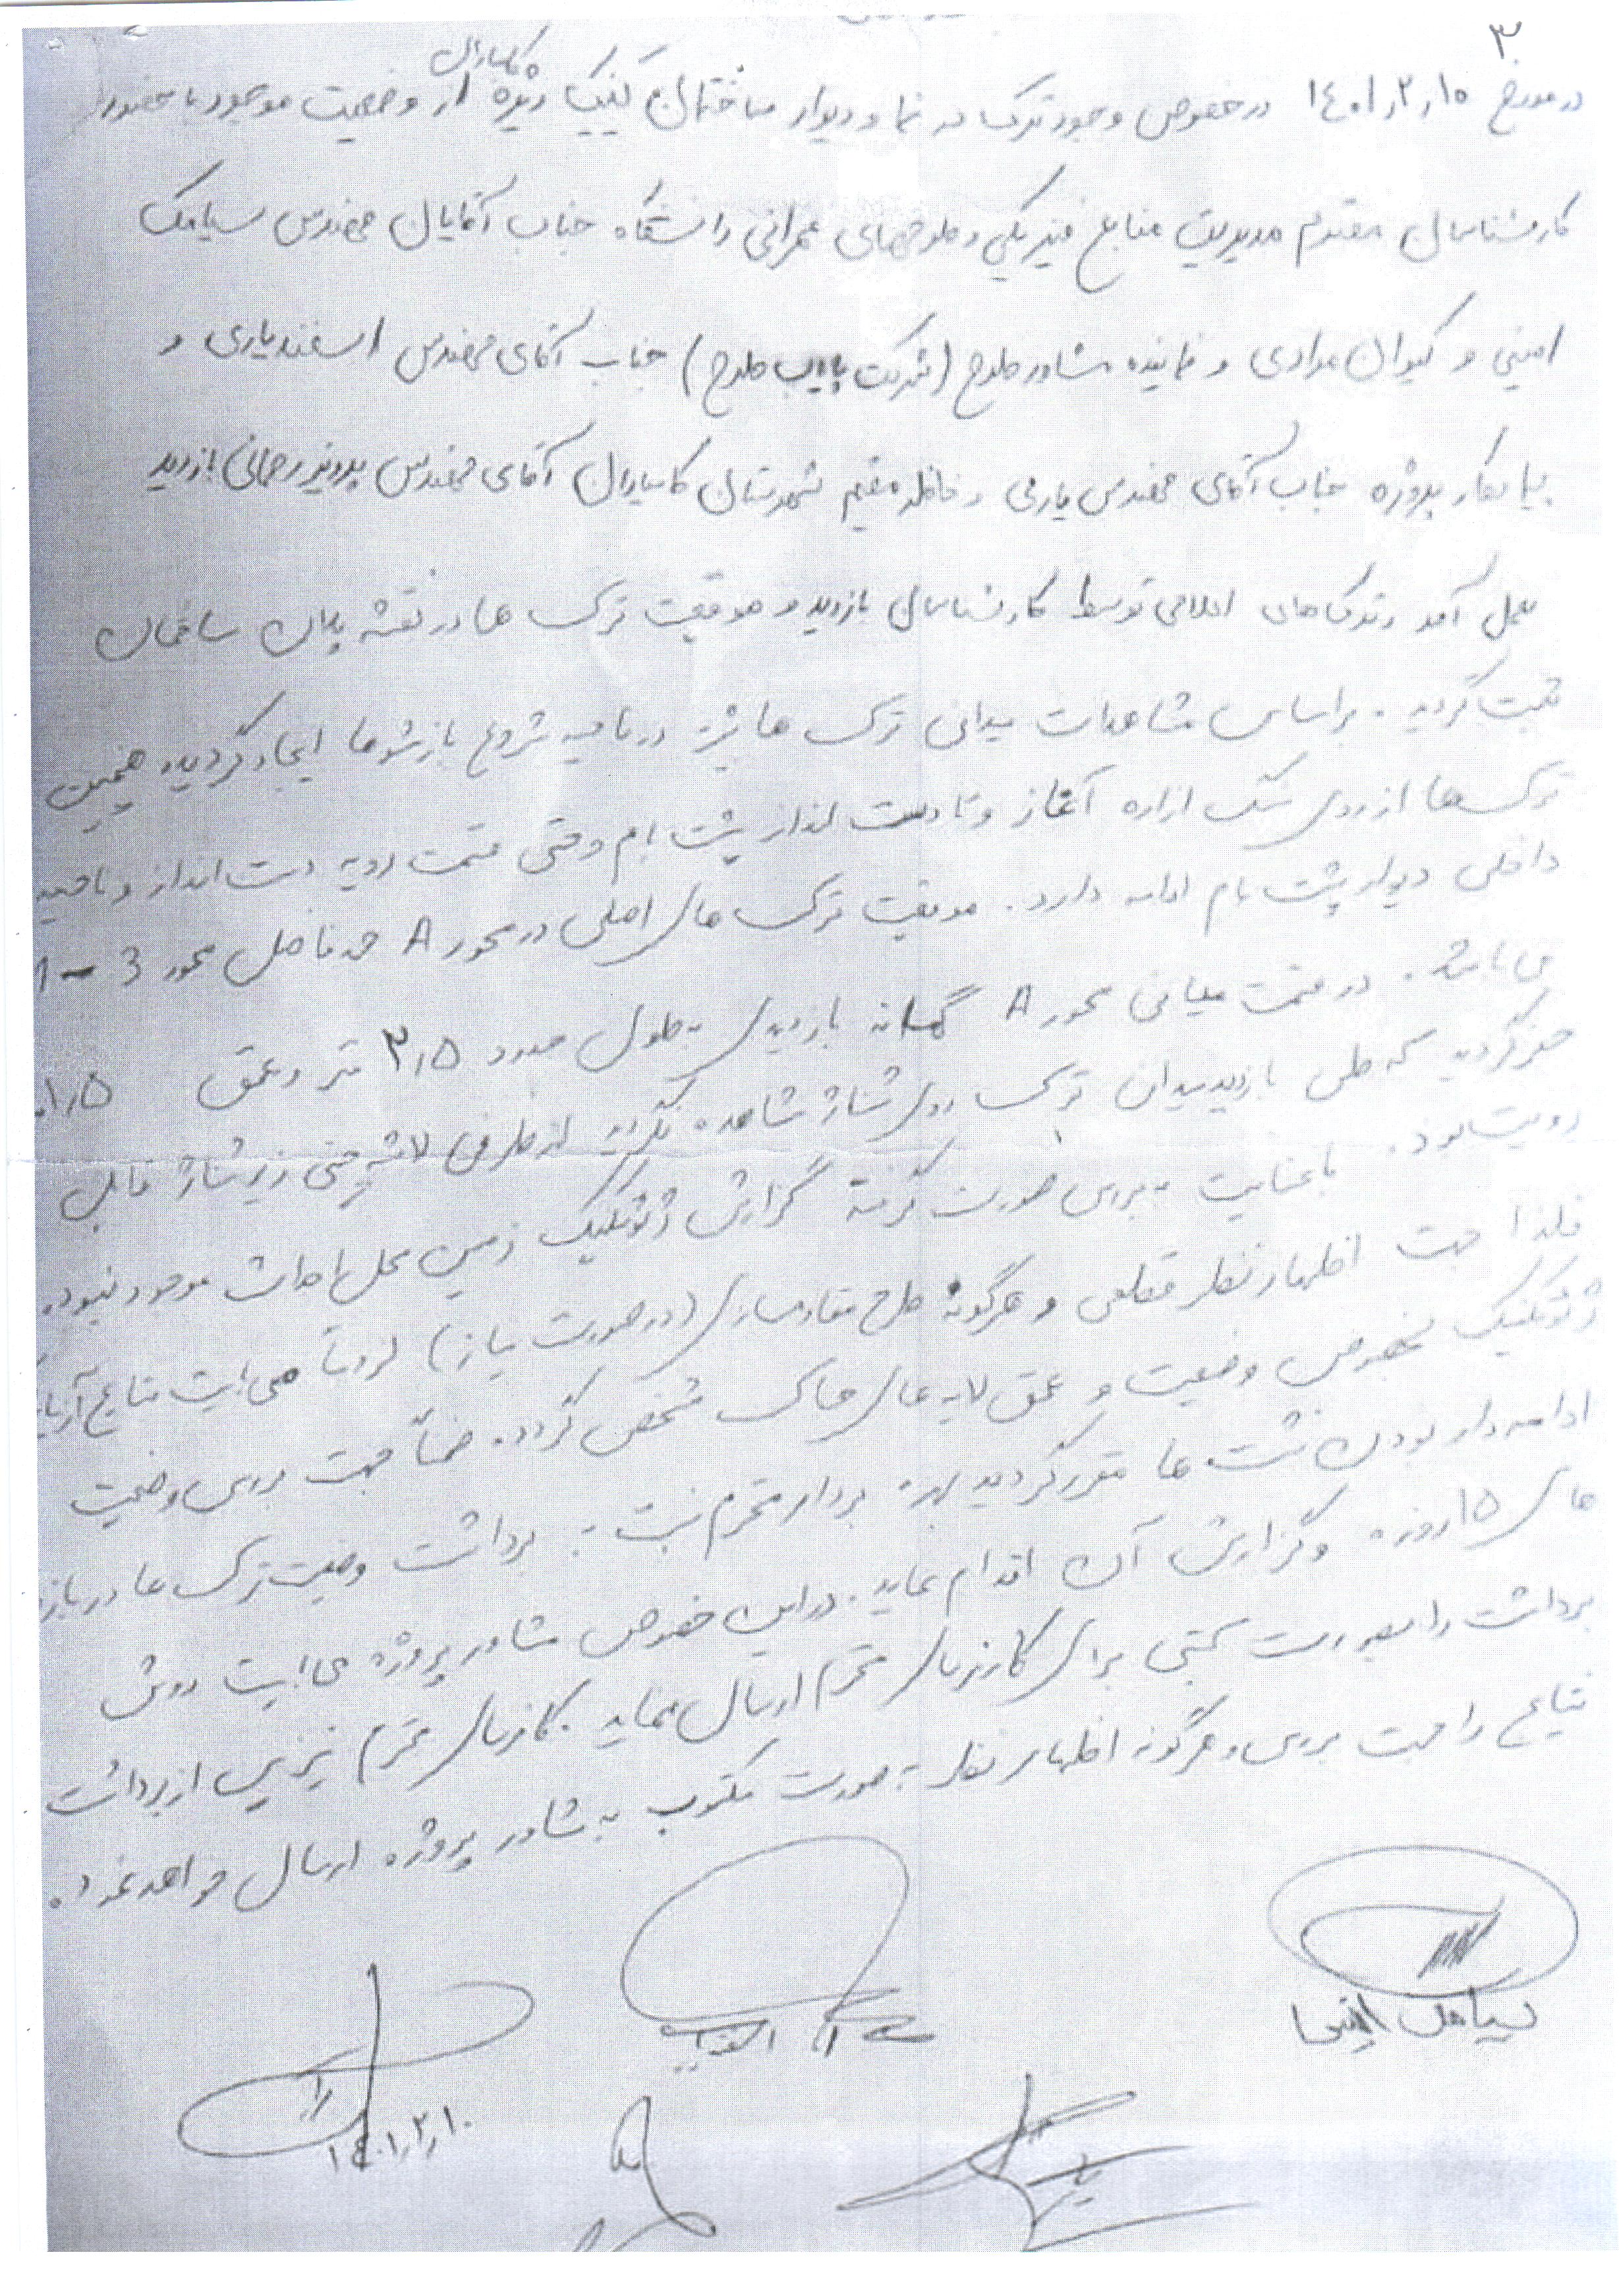 ۳
کامیاران
در مورخ ۱۴۰۱/۲/۱۰ در خصوص وجود ترک در نما و دیوار ساختمان کلینیک ویژه از وضعیت موجود با حضور
کارشناسان محترم مدیریت منابع فیزیکی و طرحهای عمرانی دانشگاه جناب آقایان مهندس سیامک
امینی و کیوان مرادی و نماینده مشاور طرح (شرکت طرح) جناب آقای مهندس اسفندیاری و
پیمانکار پروژه جناب آقای مهندس یارمی و ناظر مقیم شهرستان کامیاران آقای مهندس پرویز رحمانی بازدید
بعمل آمد و ترک های اعلامی توسط کارشناسان بازدید و موقیعت ترک ها در نقشه پلان ساختمان
ثبت گردید. براساس مشاهدات میدانی ترک ها بیشتر در ناحیه شروع بازشوها ایجاد گردیده همچنین
ترک ها از روی سنگ ازاره آغاز و تا دست انداز پشت بام و حتی قسمت رویه دست انداز و ناحیه
داخلی دیوار پشت بام ادامه دارد. موقعیت ترک های اصلی در محور A حد فاصل محور 3 ~ 1
می باشد. در قسمت میانی محور A گمانه بازدیدی به طول حدود ۳٫۵ متر و عمق ۱٫۵
حفر گردید که طی بازدید میدانی ترک روی شناژ مشاهده نگردید از طرفی لاشه چینی زیر شناژ قابل
رویت بود. با عنایت به بررسی صورت گرفته گزارش ژئوتکنیک زمین محل احداث موجود نبوده
فلذا جهت اظهار نظر قطعی و هرگونه طرح مقاوم سازی (در صورت نیاز) لزوماً می بایست نتایج
ژئوتکنیک بخصوص وضعیت و عمق لایه های خاک مشخص گردد. ضمناً جهت بررسی وضعیت
ادامه دار بودن نشست ها مقرر گردید بهره بردار محترم نسبت به برداشت وضعیت ترک ها در بازه
های ۱۵ روزه و گزارش آن اقدام نماید. در این خصوص مشاور پروژه می بایست روش
برداشت را بصورت کتبی برای کارفرمای محترم ارسال نماید. کارفرمای محترم نیز پس از برداشت
نتایج را جهت بررسی و هرگونه اظهار نظر به صورت مکتوب به مشاور پروژه ارسال خواهد نمود.
سیامک امینی
۱۴۰۱/۲/۱۰